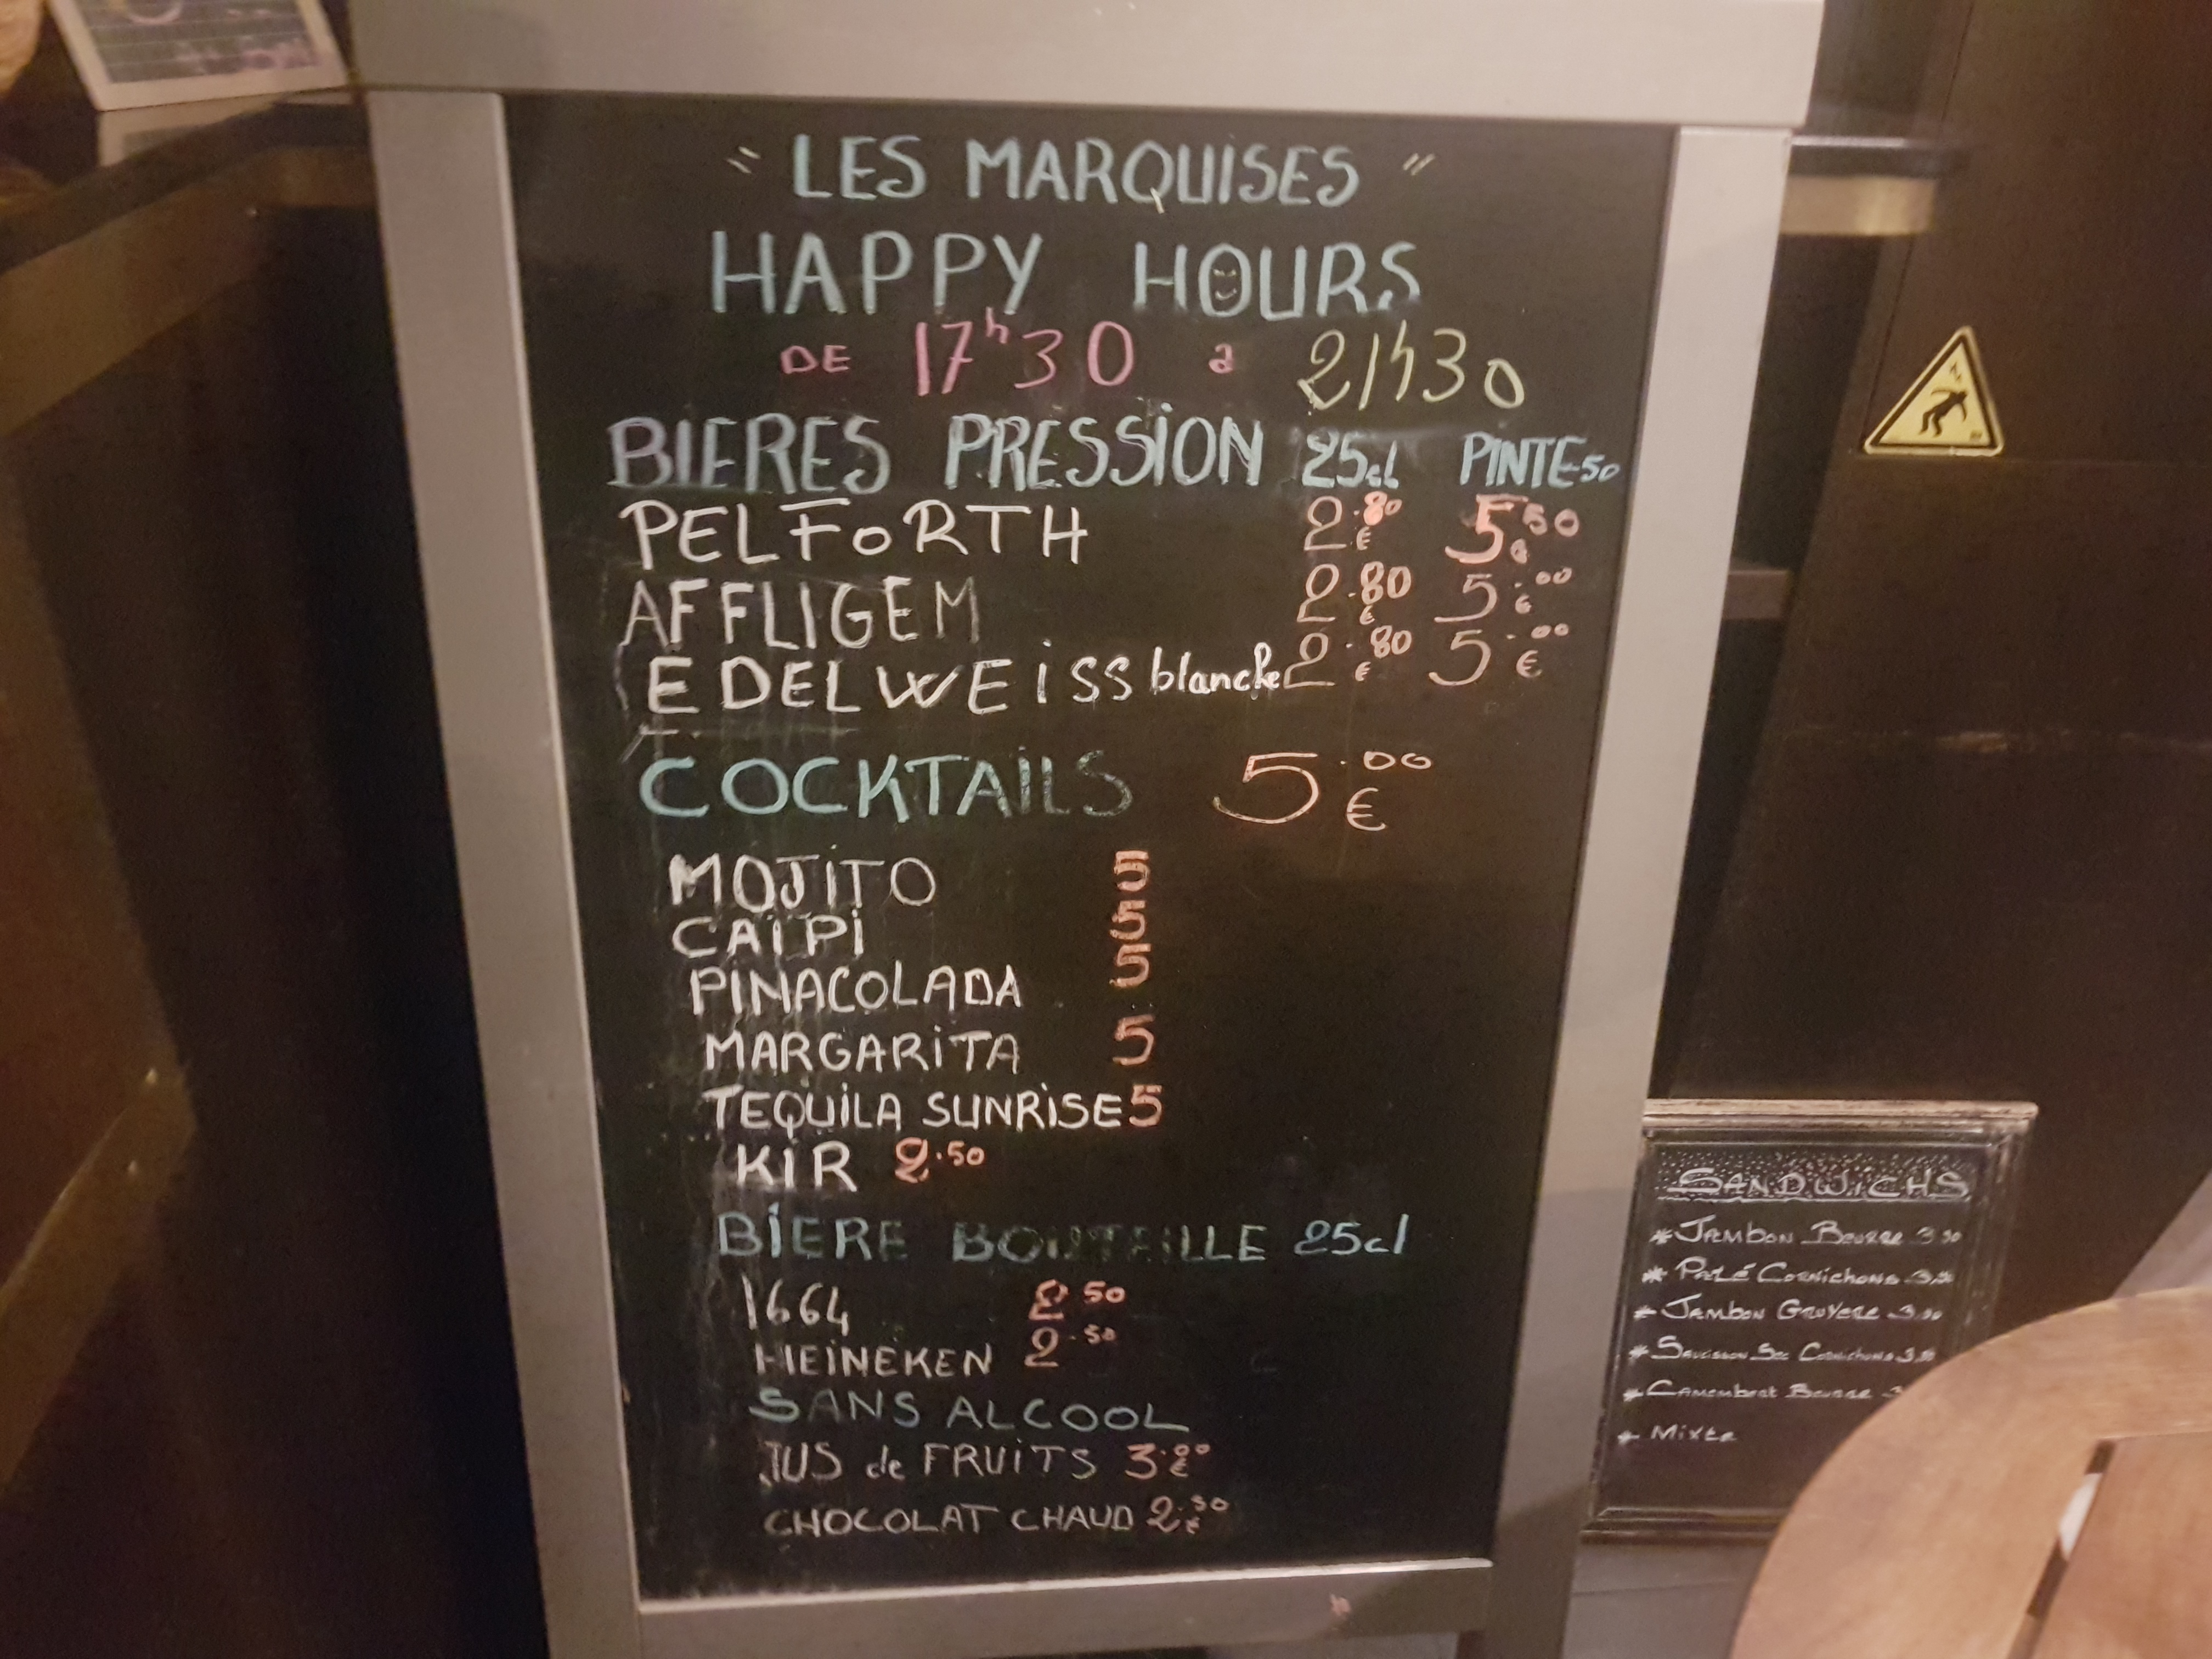 " LES MARQUISES "
HAPPY HOURS
DE 17h30 a 21h30
BIERES PRESSION 25cl PINTE 50
PELFORTH 2.80 € 5.50 €
AFFLIGEM 2.80 € 5.00 €
EDELWEISS blanche 2.80 € 5.00 €
COCKTAILS 5.00 €
MOJITO 5
CAIPI 5
PINACOLADA 5
MARGARITA 5
TEQUILA SUNRISE 5
KIR 2.50
BIERE BOUTEILLE 25cl
1664 2 50
HEINEKEN 2.50
SANS ALCOOL
JUS de FRUITS 3.00 €
CHOCOLAT CHAUD 2.50 €
SANDWICHS
* JAMBON BEURRE
* PATÉ CORNICHONS
* JAMBON GRUYERE
* SAUCISSON SEC CORNICHONS
* CAMEMBERT BEURRE
* MIXTE